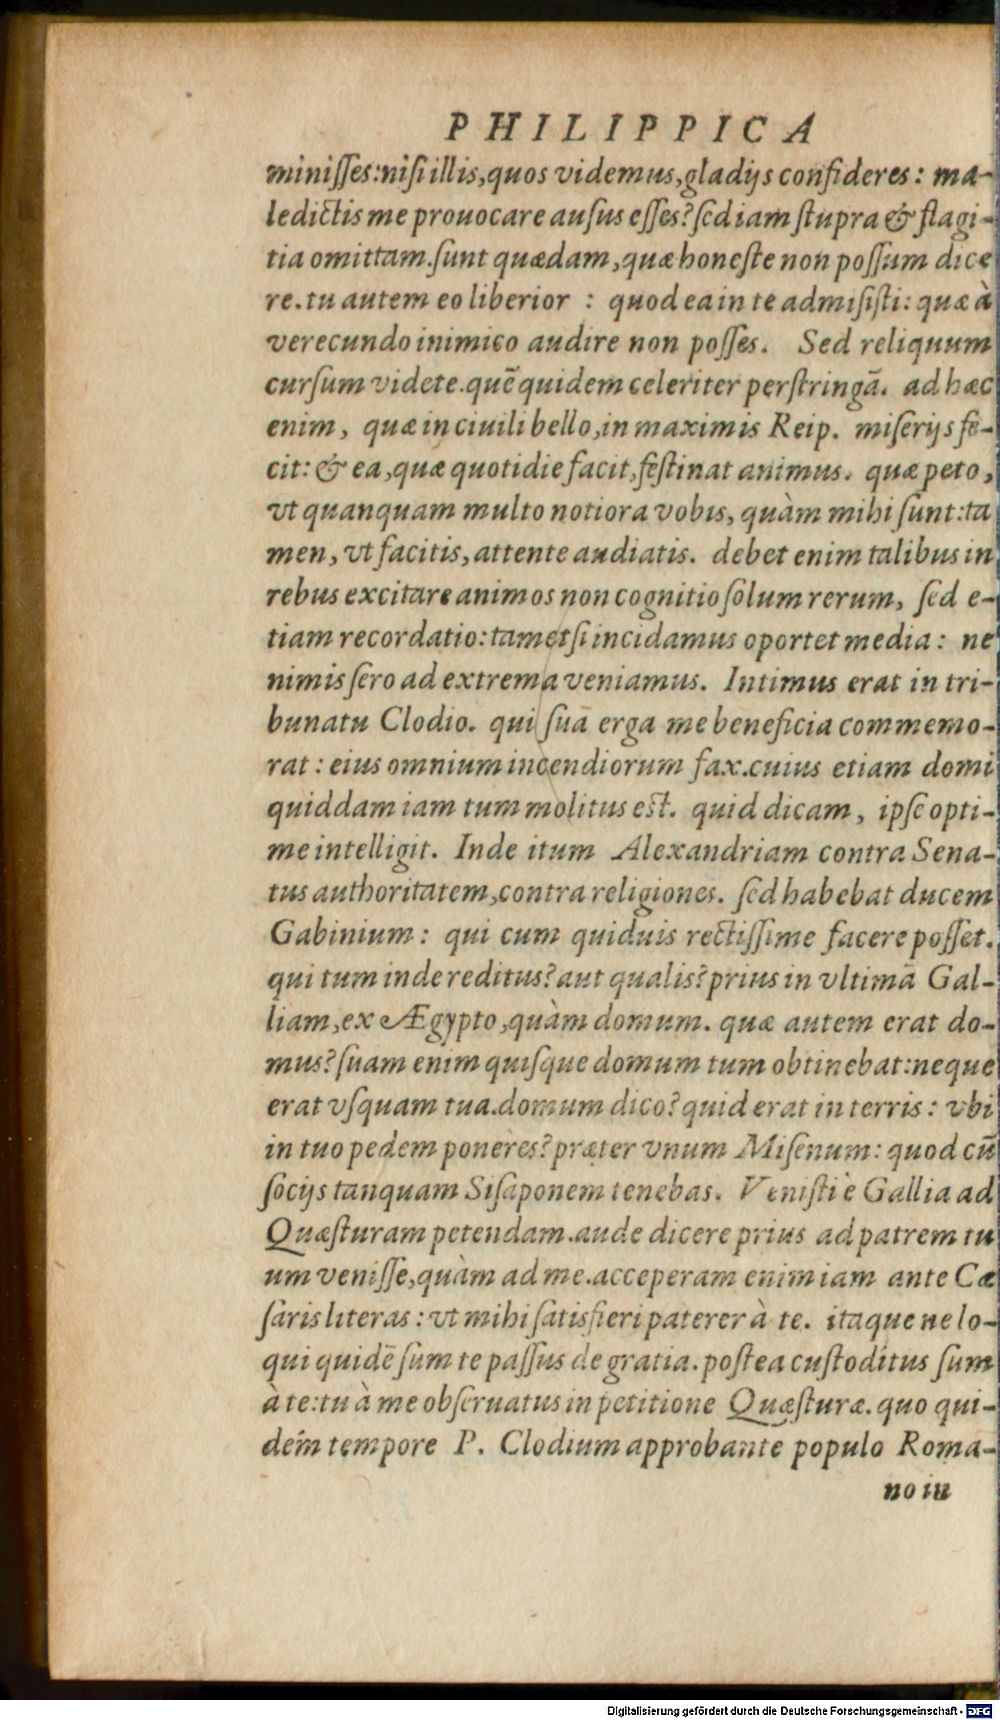 PHILIPPICA
miniſſes:niſi illis,quos videmus,gladijs confideres: ma-
ledictis me prouocare auſus eſſes? ſed iam ſtupra & flagi-
tia omittam.ſunt quædam,quæ honeſte non poſſum dice
re.tu autem eo liberior : quod ea in te admiſiſti: quæ à
verecundo inimico audire non poſſes. Sed reliquum
curſum videte.quē quidem celeriter perſtringā. ad hæc
enim, quæ in ciuili bello,in maximis Reip. miſerijs fe-
cit: & ea,quæ quotidie facit,feſtinat animus. quæ peto,
vt quanquam multo notiora vobis, quàm mihi ſunt:ta
men, vt facitis, attente audiatis. debet enim talibus in
rebus excitare animos non cognitio ſolum rerum, ſed e-
tiam recordatio: tametſi incidamus oportet media: ne
nimis ſero ad extrema veniamus. Intimus erat in tri-
bunatu Clodio. qui ſuā erga me beneficia commemo-
rat: eius omnium incendiorum fax.cuius etiam domi
quiddam iam tum molitus eſt. quid dicam, ipſe opti-
me intelligit. Inde itum Alexandriam contra Sena-
tus authoritatem,contra religiones. ſed habebat ducem
Gabinium: qui cum quiduis rectiſſime facere poſſet.
qui tum inde reditus? aut qualis? prius in vltimā Gal-
liam,ex Ægypto,quàm domum. quæ autem erat do-
mus? ſuam enim quiſque domum tum obtinebat:neque
erat vſquam tua.domum dico? quid erat in terris: vbi
in tuo pedem poneres? præter vnum Miſenum: quod cū
ſocijs tanquam Siſaponem tenebas. Veniſti è Gallia ad
Quæſturam petendam.aude dicere prius ad patrem tu
um veniſſe,quàm ad me.acceperam enim iam ante Cæ
ſaris literas: vt mihi ſatisfieri paterer à te. itaque ne lo-
qui quidē ſum te paſſus de gratia. poſtea cuſtoditus ſum
à te:tu à me obſeruatus in petitione Quæſturæ. quo qui-
dem tempore P. Clodium approbante populo Roma-
no in
Digitalisierung gefördert durch die Deutsche Forschungsgemeinschaft - DFG